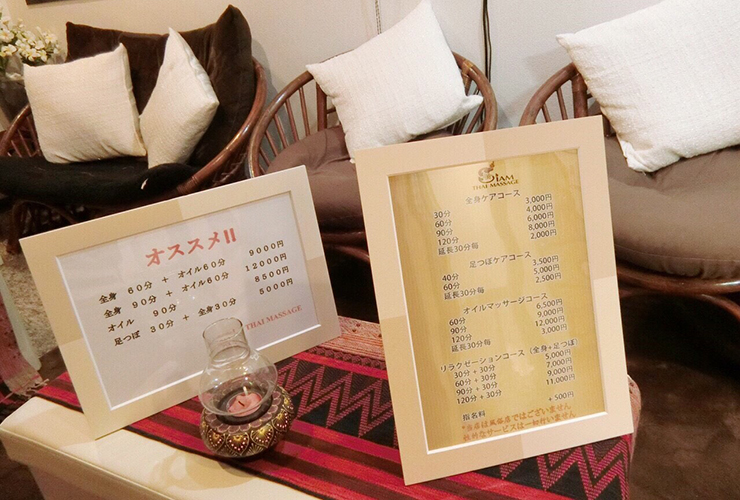 オススメII
全身 60分 + オイル60分 9000円
全身 90分 + オイル60分 12000円
オイル 90分 8500円
足つぼ 30分 + 全身30分 5000円
THAI MASSAGE
SIAM
THAI MASSAGE
全身ケアコース
30分 3,000円
60分 4,000円
90分 6,000円
120分 8,000円
延長30分毎 2,000円
足つぼケアコース
40分 3,500円
60分 5,000円
延長30分毎 2,500円
オイルマッサージコース
60分 6,500円
90分 9,000円
120分 12,000円
延長30分毎 3,000円
リラクゼーションコース (全身+足つぼ)
30分+30分 5,000円
60分+30分 7,000円
90分+30分 9,000円
120分+30分 11,000円
指名料 +500円
*当店は風俗店ではございません
性的なサービスは一切行いません